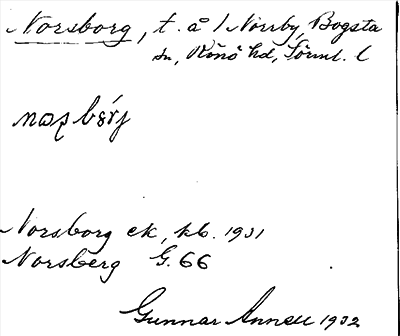 Norsborg, t. å 1 Norrby, Bogsta
sn, Rönö hd, Sörml. l
Norsborg ek, kb. 1931
Norsberg G. 66
Gunnar Annell 1932